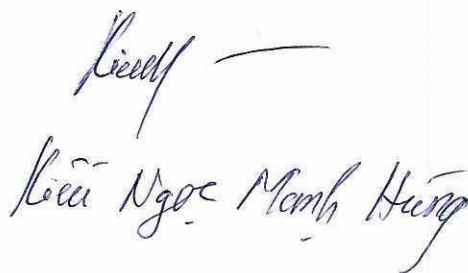 Kiều Ngọc Mạnh Hùng